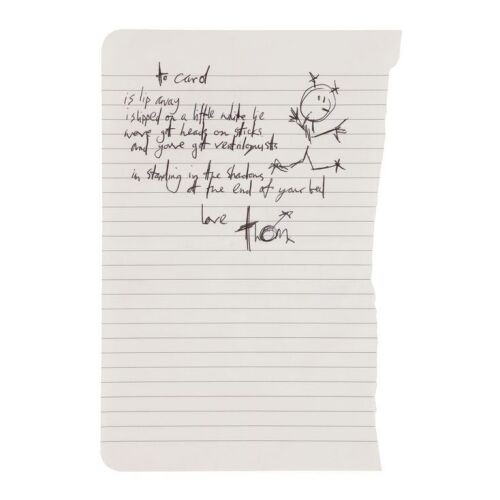 to carol
is lip away
is lipped on a little white lie
weve got heads on sticks
and youve got ventriloquists
im standing in the shadows
at the end of your bed
love thom